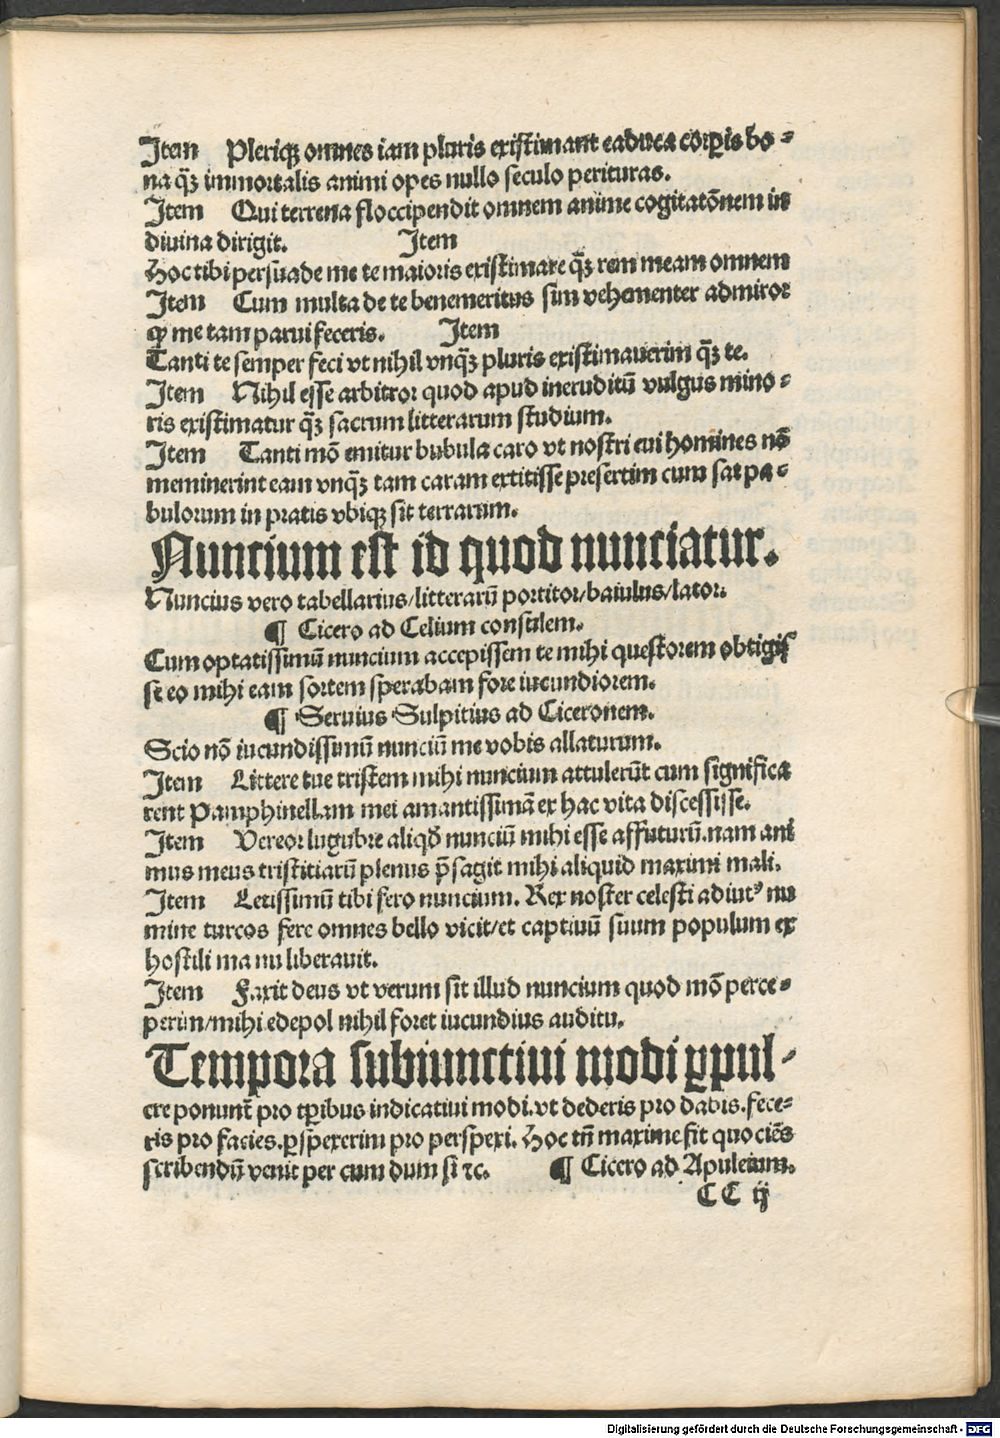 Item Pleriqꝫ omnes iam pluris existimant caduca corꝑis bo-
na qꝫ̃ immortalis animi opes nullo seculo perituras.
Item Qui terrena floccipendit omnem anime cogitatōnem in
diuina dirigit. Item
Hoc tibi persuade me te maioris existimare qꝫ̃ rem meam omnem
Item Cum multa de te benemeritus sim vehementer admiror
ꝙ me tam parui feceris. Item
Tanti te semper feci vt nihil vnqꝫ̃ pluris existimauerim qꝫ̃ te.
Item Nihil esse arbitror quod apud ineruditū vulgus mino-
ris existimatur qꝫ̃ sacrum litterarum studium.
Item Tanti mō emitur bubula caro vt nostri eui homines nō
meminerint eam vnqꝫ̃ tam caram extitisse presertim cum sat pa-
bulorum in pratis vbiqꝫ sit terrarum.
Nuncium est id quod nunciatur.
Nuncius vero tabellarius/litterarū portitor/baiulus/lator.
¶ Cicero ad Celium consulem.
Cum optatissimū nuncium accepissem te mihi questorem obtigis
se eo mihi eam sortem sperabam fore iucundiorem.
¶ Seruius Sulpitius ad Ciceronem.
Scio nō iucundissimū nunciū me vobis allaturum.
Item Littere tue tristem mihi nuncium attulerūt cum significa
rent Pamphinellam mei amantissimā ex hac vita discessisse.
Item Vereor lugubre aliqđ nunciū mihi esse affuturū.nam ani
mus meus tristitiarū plenus p̄sagit mihi aliquid maximi mali.
Item Letissimū tibi fero nuncium. Rex noster celesti adiutꝰ nu
mine turcos fere omnes bello vicit/et captiuū suum populum ex
hostili manu liberauit.
Item Faxit deus vt verum sit illud nuncium quod mō perce-
perim/mihi edepol nihil foret iucundius auditu.
Tempora subiunctiui modi ꝓpul-
cre ponunt᷑ pro tꝑibus indicatiui modi.vt dederis pro dabis.fece-
ris pro facies.ꝑspexerim pro perspexi. Hoc tn̄ maxime fit quociēs
scribendū venit per cum dum si ⁊c. ¶ Cicero ad Apuleium.
CC ij
Digitalisierung gefördert durch die Deutsche Forschungsgemeinschaft - DFG